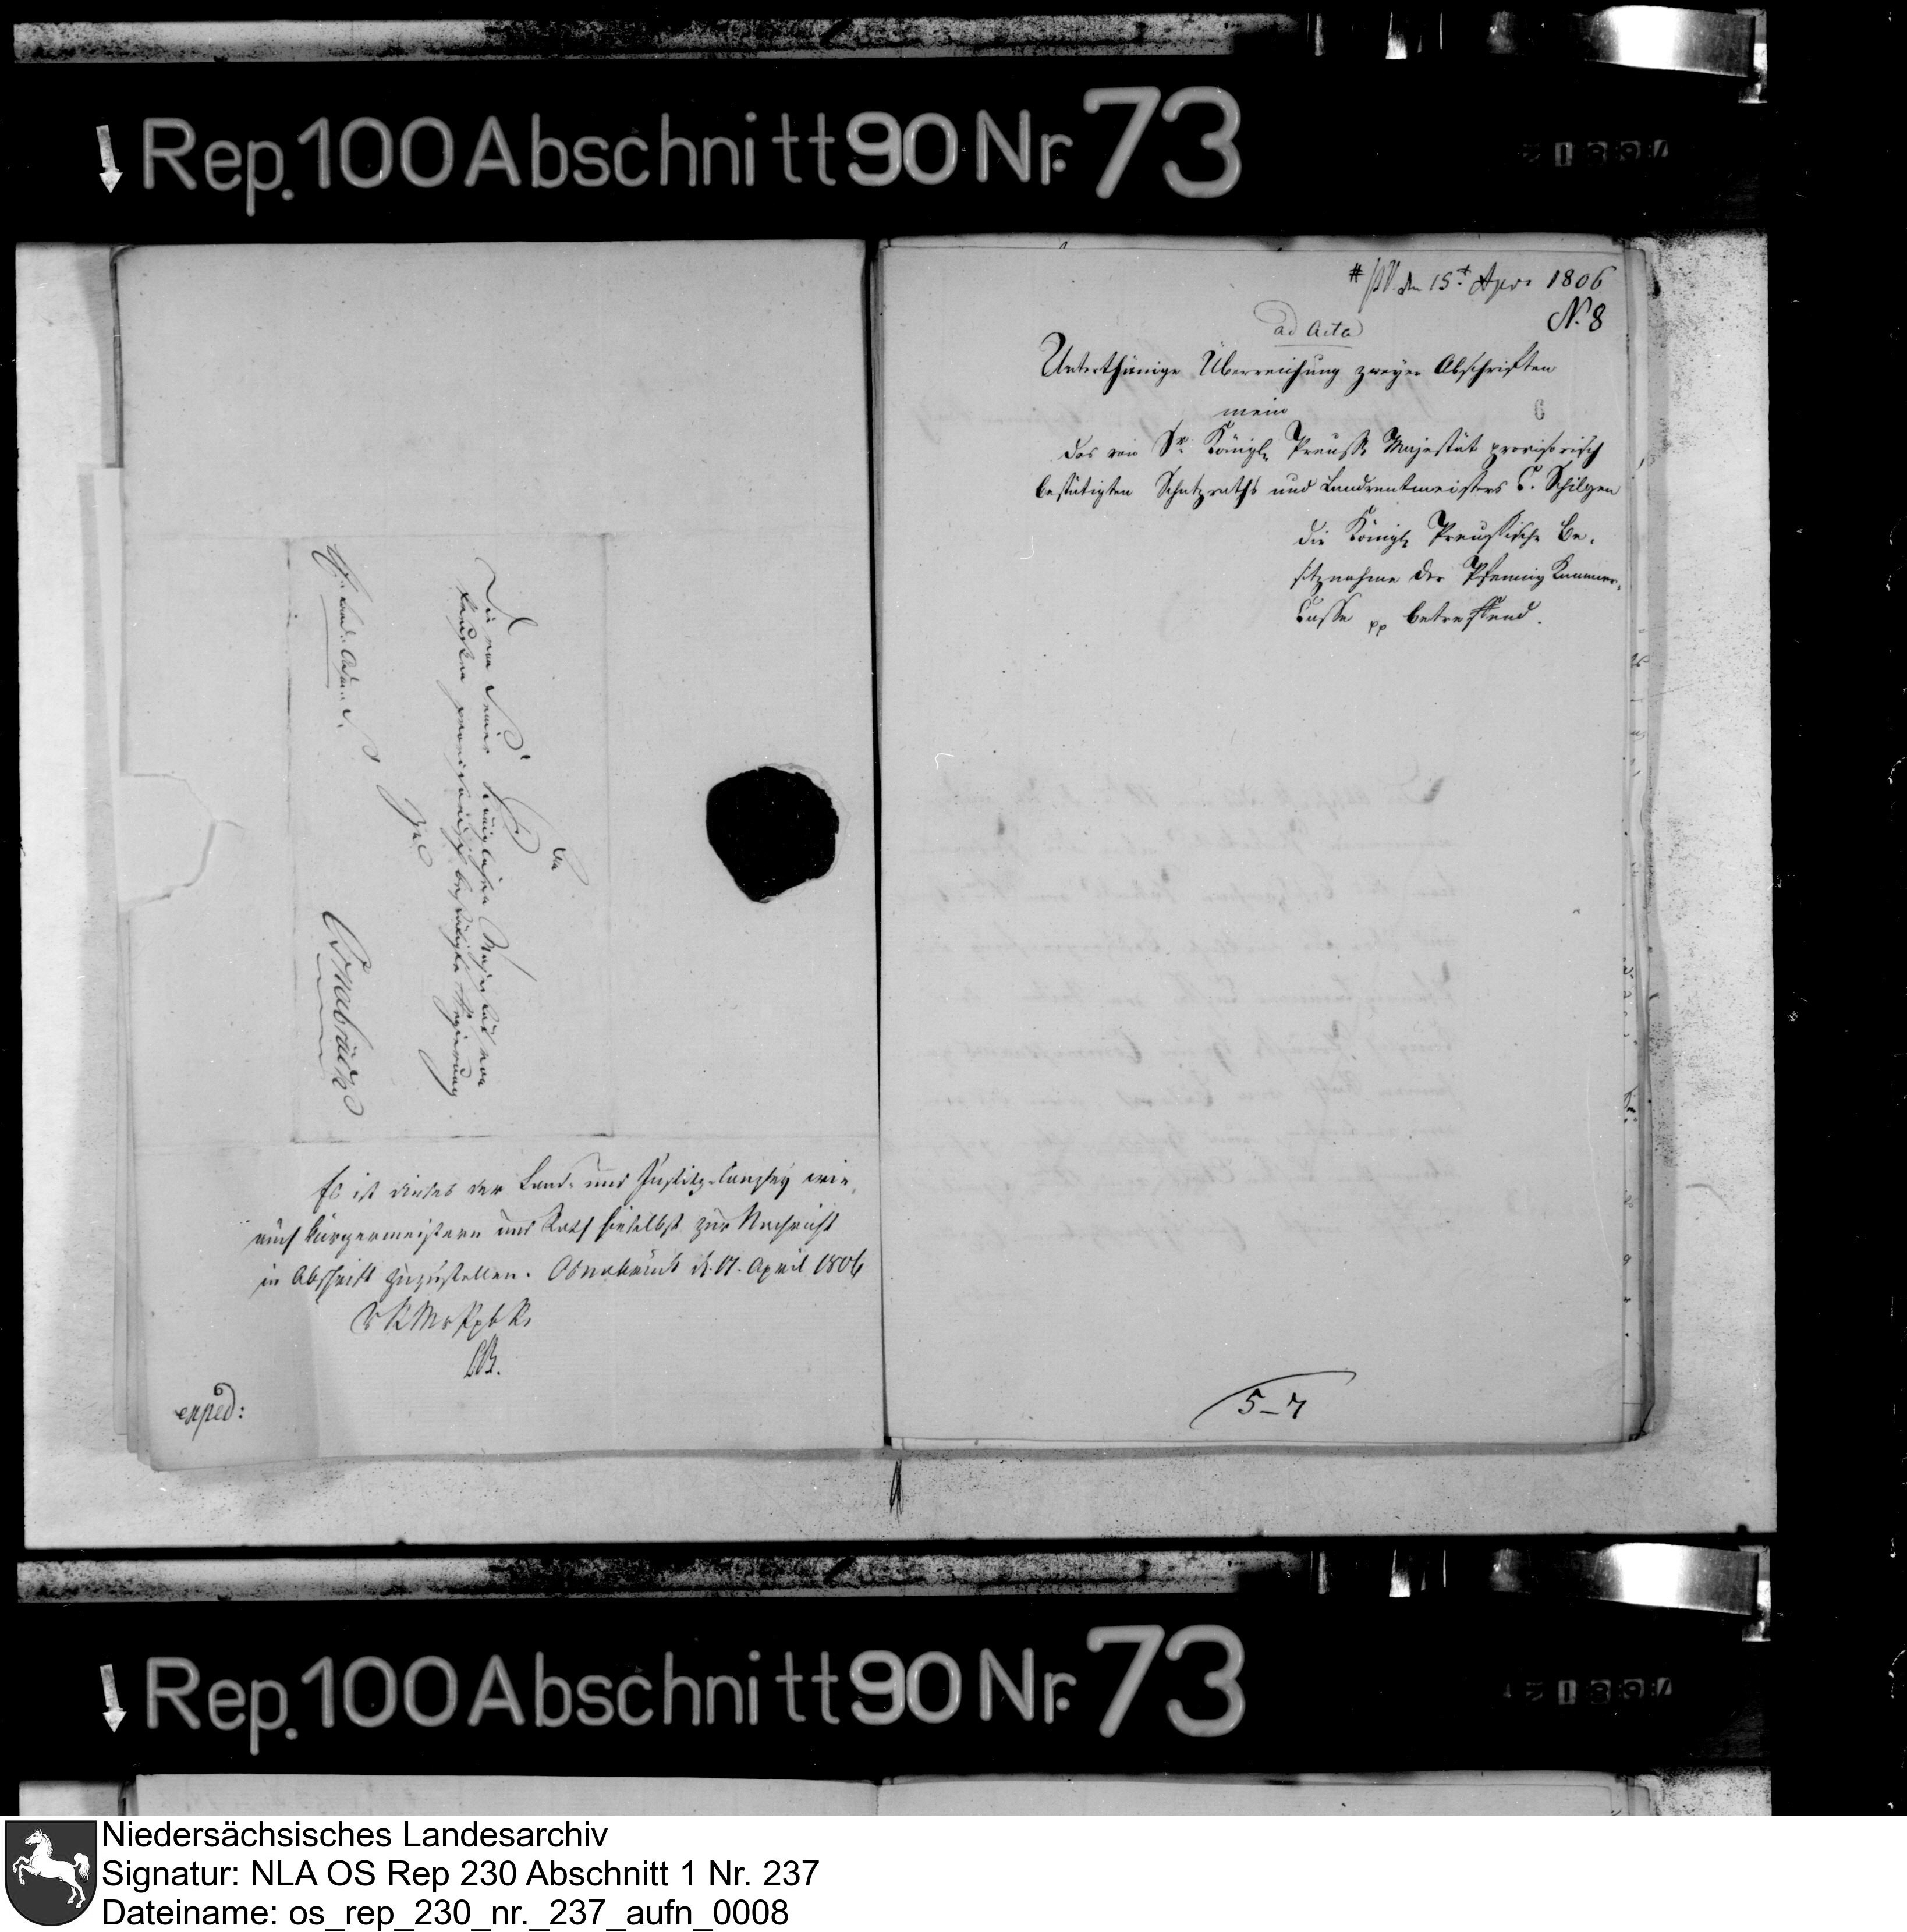 Rep. 100 Abschnitt 90 Nr. 73
An
Die von Seiner Königlichen Majestät von
Preußen provisorisch bestätigte Regierung
zu
Osnabrück
Es ist dieses der Land- und Justitz-Canzley wie
auch Bürgermeistern und Rath hieselbst zur Nachricht
in Abschrift zuzustellen. Osnabrück d. 17. April 1806
exped:
den 15t Apr. 1806
N. 8
ad Acta
Unterthänige Überreichung zweyer Abschriften
mein
6
des von Sr. Königl. Preuss. Majestät provisorisch
bestätigten Schatzraths und Landrentmeisters C. Schilgen
die Königl. Preussische Be-
sitznahme der Pfennig Kammer-
Casse pp betreffend.
5-7
Rep. 100 Abschnitt 90 Nr. 73
Niedersächsisches Landesarchiv
Signatur: NLA OS Rep 230 Abschnitt 1 Nr. 237
Dateiname: os_rep_230_nr._237_aufn_0008